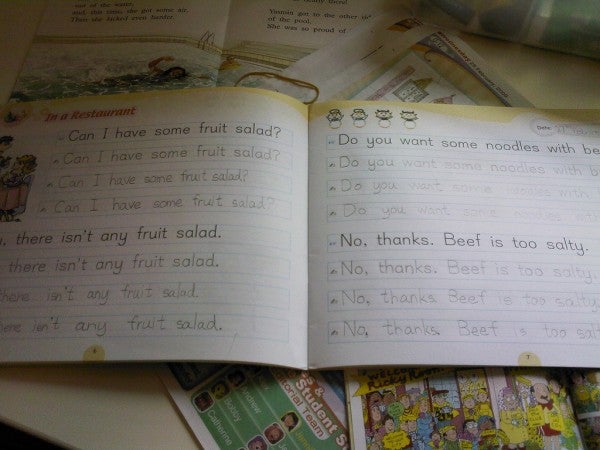 out of the water,
and, this time, she got some air.
Then she kicked even harder.
Yasmin got to the other
of the pool.
She was so proud of
In a Restaurant
Can I have some fruit salad?
Can I have some fruit salad?
Can I have some fruit salad?
Can I have some fruit salad?
there isn't any fruit salad.
there isn't any fruit salad.
there isn't any fruit salad.
isn't any fruit salad.
6
Date:
Do you want some noodles with
Do you want some noodles with
Do you want some noodles with
Do you want some noodles with
No, thanks. Beef is too salty.
No, thanks. Beef is too salty.
No, thanks. Beef is too salty
No, thanks. Beef is too
7
& Student S
Team
Andrew
Bobby
Catherine
WELCOME